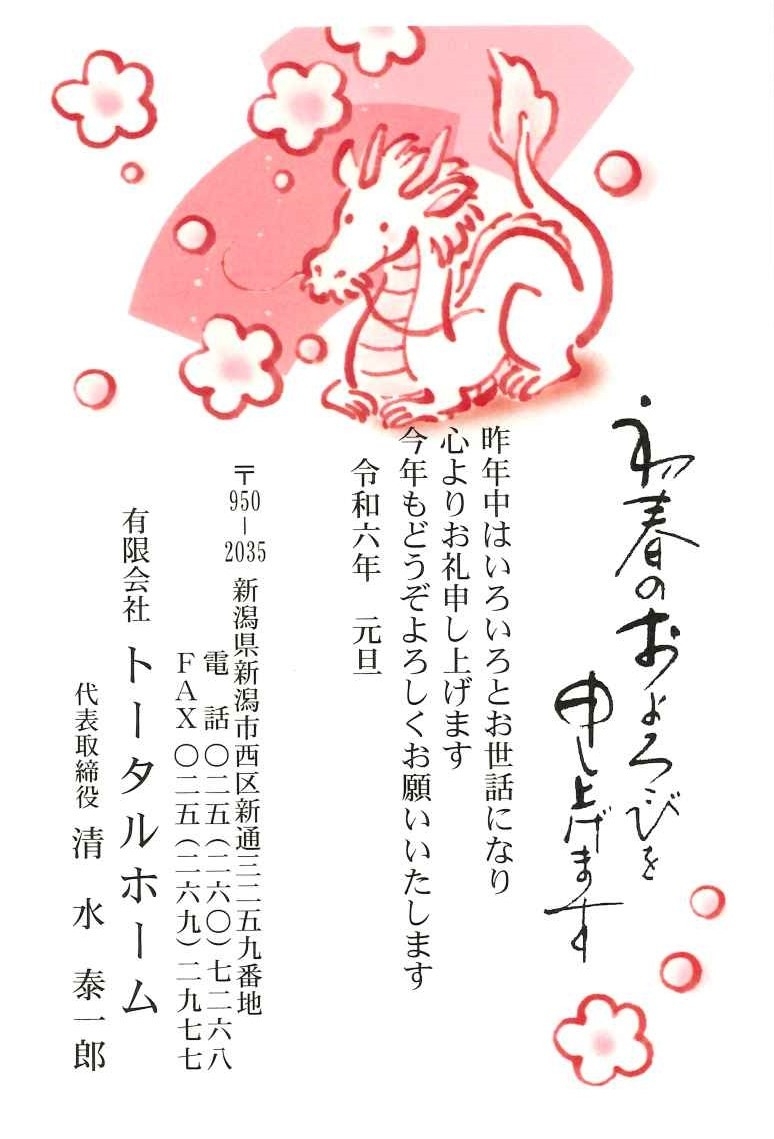 初春のおよろこびを
申し上げます
昨年中はいろいろとお世話になり
心よりお礼申し上げます
今年もどうぞよろしくお願いいたします
令和六年　元旦
〒950-2035　新潟県新潟市西区新通三二五九番地
電　話　〇二五(二六〇)七二六八
ＦＡＸ　〇二五(二六九)二九七七
有限会社　トータルホーム
代表取締役　清　水　泰一郎